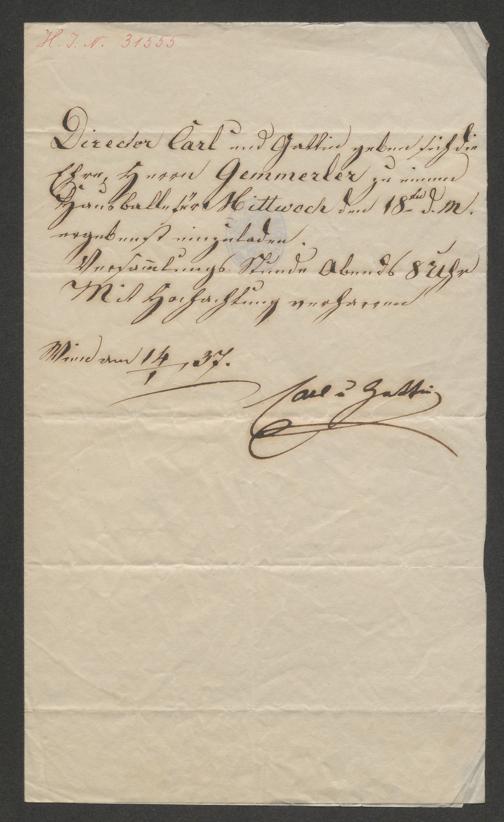 H. I. N. 31555
Director Carl und Gattin geben sich die
Ehre, Herrn Gemmerler zu einem
Hausballe für Mittwoch den 18ten d. M.
ergebenst einzuladen.
Versam̅lungs Stunde Abends 8 Uhr
Mit Hochachtung verharren
Wien am 14/1 37.
Carl u Gattin